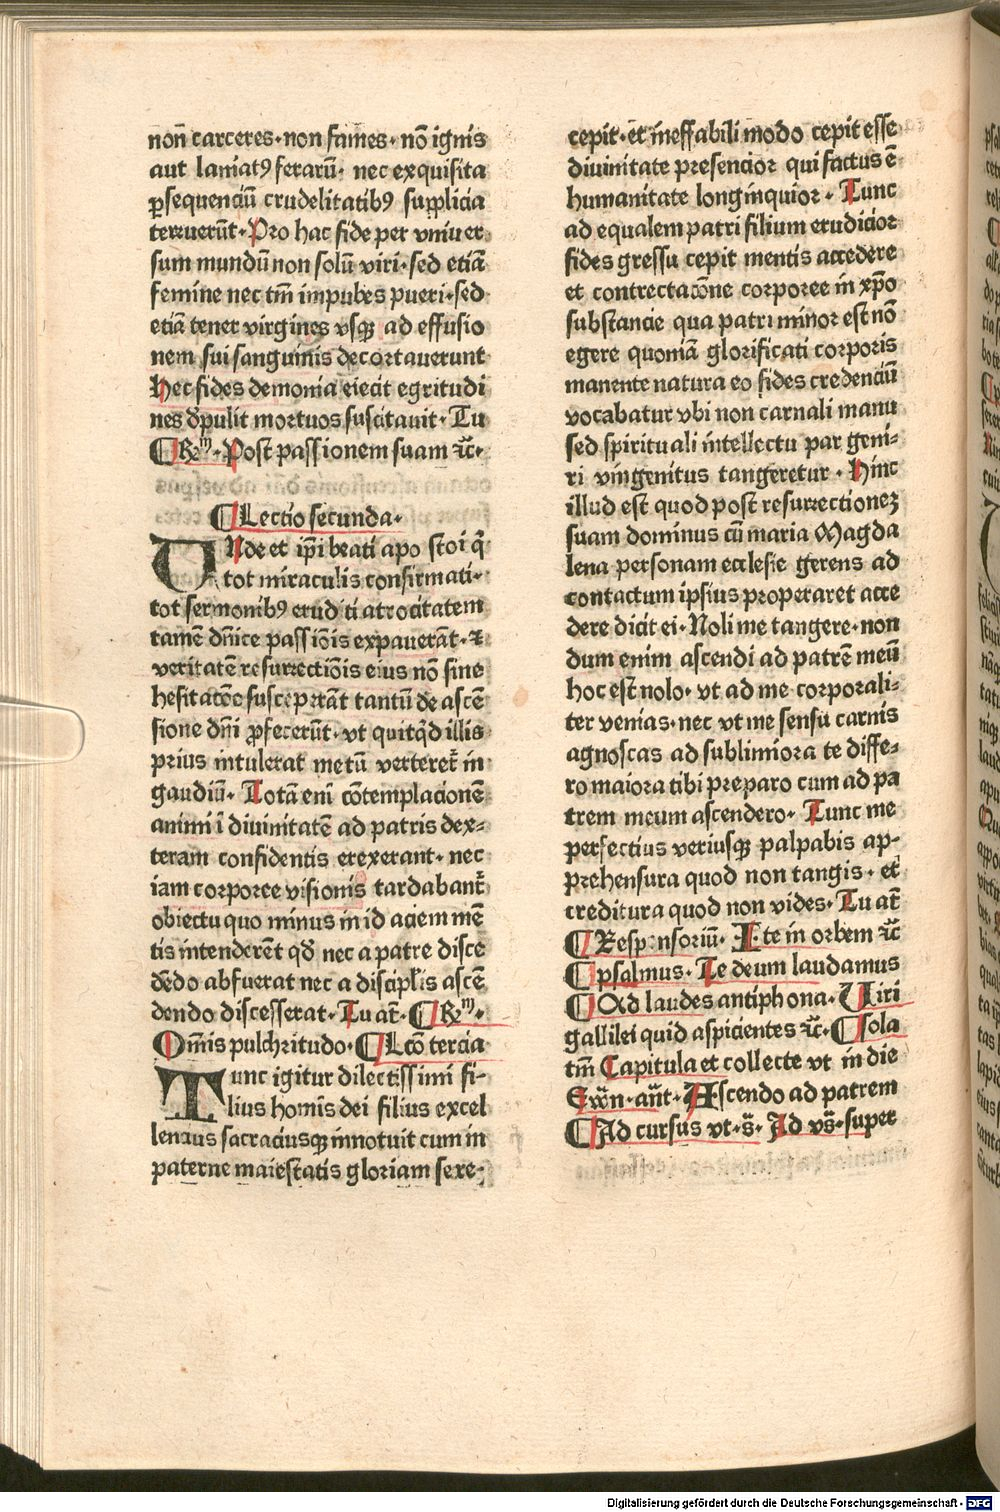 non̄ carceres·non fames· nō ignis
aut laniatꝰ ferarū· nec exquisita
ꝑsequenciū crudelitatibꝰ supplicia
terruerūt·Pro hac fide per vniuer
sum mundū non solū viri·sed etiā
femine nec tm̄ impubes pueri·sed
etiā tener virgines vsqꝫ ad effusio
nem sui sanguinis decortauerunt
Hec fides demonia eiecit egritudi
nes d̄pulit mortuos suscitauit·Tu
⸿ Rm·Post passionem suam ⁊c̄·
⸿ Lectio secunda·
Unde et ip̄i beati apo stoi q̄
tot miraculis confirmati·
tot sermonibꝰ erud iti atrocitatem
tamē dn̄ice passiōis expauerāt·⁊
veritatē resurrectiōis eius nō sine
hesitacōe suscep̱erāt tantū de ascē
sione dn̄i ꝓfecerūt·vt quitqd illis
prius intulerat metū verteret̄ in
gaudiū· Totā eni cōtemplacionē
animi ī diuinitatē ad patris dex⸗
teram confidentis erexerant· nec
iam corporee visionis tardabant̄
obiectu quo minus in id aciem mē
tis intenderēt qd̄ nec a patre disce
dēdo abfuerat nec a disciplis ascē
dendo discesserat·Tu at̄·⸿ Rm·
Om̄is pulchritudo·⸿ Lcō tercia
Tunc igitur dilectissimi fi⸗
lius homīs dei filius excel
lencius sacraciusqꝫ innotuit cum in
paterne maiestatis gloriam sere⸗
cepit·et ineffabili modo cepit esse
diuinitate presencior qui factus ē
humanitate longinquior · Tunc
ad equalem patri filium erudicior
fides gressu cepit mentis accedere
et contrectacōne corporee in xp̄o
substancie qua patri minor est nō
egere quoniā glorificati corporis
manente natura eo fides credenciū
vocabatur vbi non carnali manu
sed spirituali intellectu par geni⸗
ri vnigenitus tangeretur · Hinc
illud est quod post resurrectionez
suam dominus cū maria Magda
lena personam ecclesie gerens ad
contactum ipsius properaret acce
dere dicit ei·Noli me tangere·non
dum enim ascendi ad patrē meū
hoc est nolo· vt ad me corporali⸗
ter venias·nec vt me sensu carnis
agnoscas ad sublimiora te diffe⸗
ro maiora tibi preparo cum ad pa
trem meum ascendero· Tunc me
perfectius veriusqꝫ palpabis ap⸗
prehensura quod non tangis· et
creditura quod non vides·Tu at̄
⸿ Responsoriū· Ite in orbem ⁊c̄
⸿ psalmus·Te deum laudamus
⸿ Ad laudes antiphona·Viri
gallilei quid aspicientes ⁊c̄·⸿ Sola
tm̄ Capitula et collecte vt in die
Ewn̄·an̄t·Ascendo ad patrem
⸿ Ad cursus vt·s̄· Ad vs̄·super
Digitalisierung gefördert durch die Deutsche Forschungsgemeinschaft - DFG